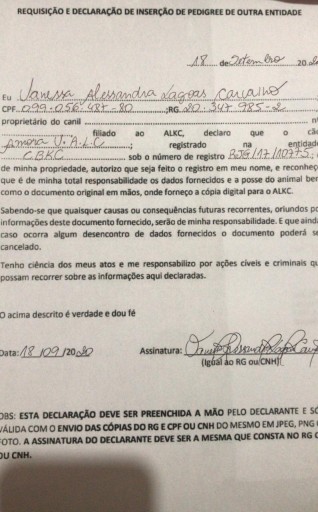 REQUISIÇÃO E DECLARAÇÃO DE INSERÇÃO DE PEDIGREE DE OUTRA ENTIDADE
18 de Setembro 20
Eu Vanessa Alessandra Lagoas Carvalho
CPF 099-056-487-80 ;RG 20.347.985-2
proprietário do canil
filiado ao ALKC, declaro que o
Amora V.A.L.C ; registrado na entidade
CBKC sob o número de registro RJG/17/10775;
de minha propriedade, autorizo que seja feito o registro em meu nome, e reconheço
que é de minha total responsabilidade os dados fornecidos e a posse do animal
como o documento original em mãos, onde forneço a cópia digital para o ALKC.
Sabendo-se que quaisquer causas ou consequências futuras recorrentes, oriundos
informações deste documento fornecido, serão de minha responsabilidade. E que
caso ocorra algum desencontro de dados fornecidos o documento poderá
cancelado.
Tenho ciência dos meus atos e me responsabilizo por ações cíveis e criminais
possam recorrer sobre as informações aqui declaradas.
O acima descrito é verdade e dou fé
Data: 18/09/2020 Assinatura:
(Igual ao RG ou CNH)
OBS: ESTA DECLARAÇÃO DEVE SER PREENCHIDA A MÃO PELO DECLARANTE E SÓ
VÁLIDA COM O ENVIO DAS CÓPIAS DO RG E CPF OU CNH DO MESMO EM JPEG, PNG
FOTO. A ASSINATURA DO DECLARANTE DEVE SER A MESMA QUE CONSTA NO RG
OU CNH.